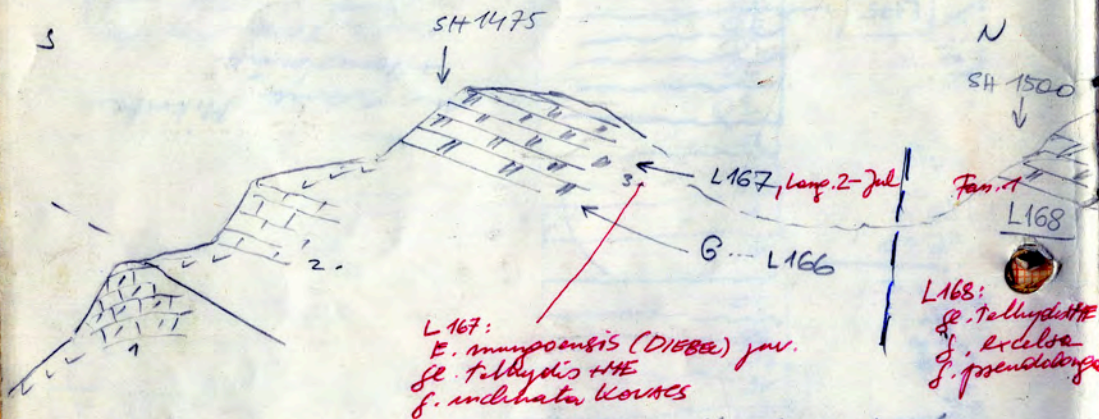 S
SH 1475
N
SH 1500
L167, Lang. 2 - Jul
3.
Fass. 1
L168
G ... L166
2.
1
L 167:
E. mungoensis (DIEBEL) juv.
ge. tethydis HME
g. inclinata KOVACS
L168:
ge. tethydis HME
g. excelsa
g. pseudolonga